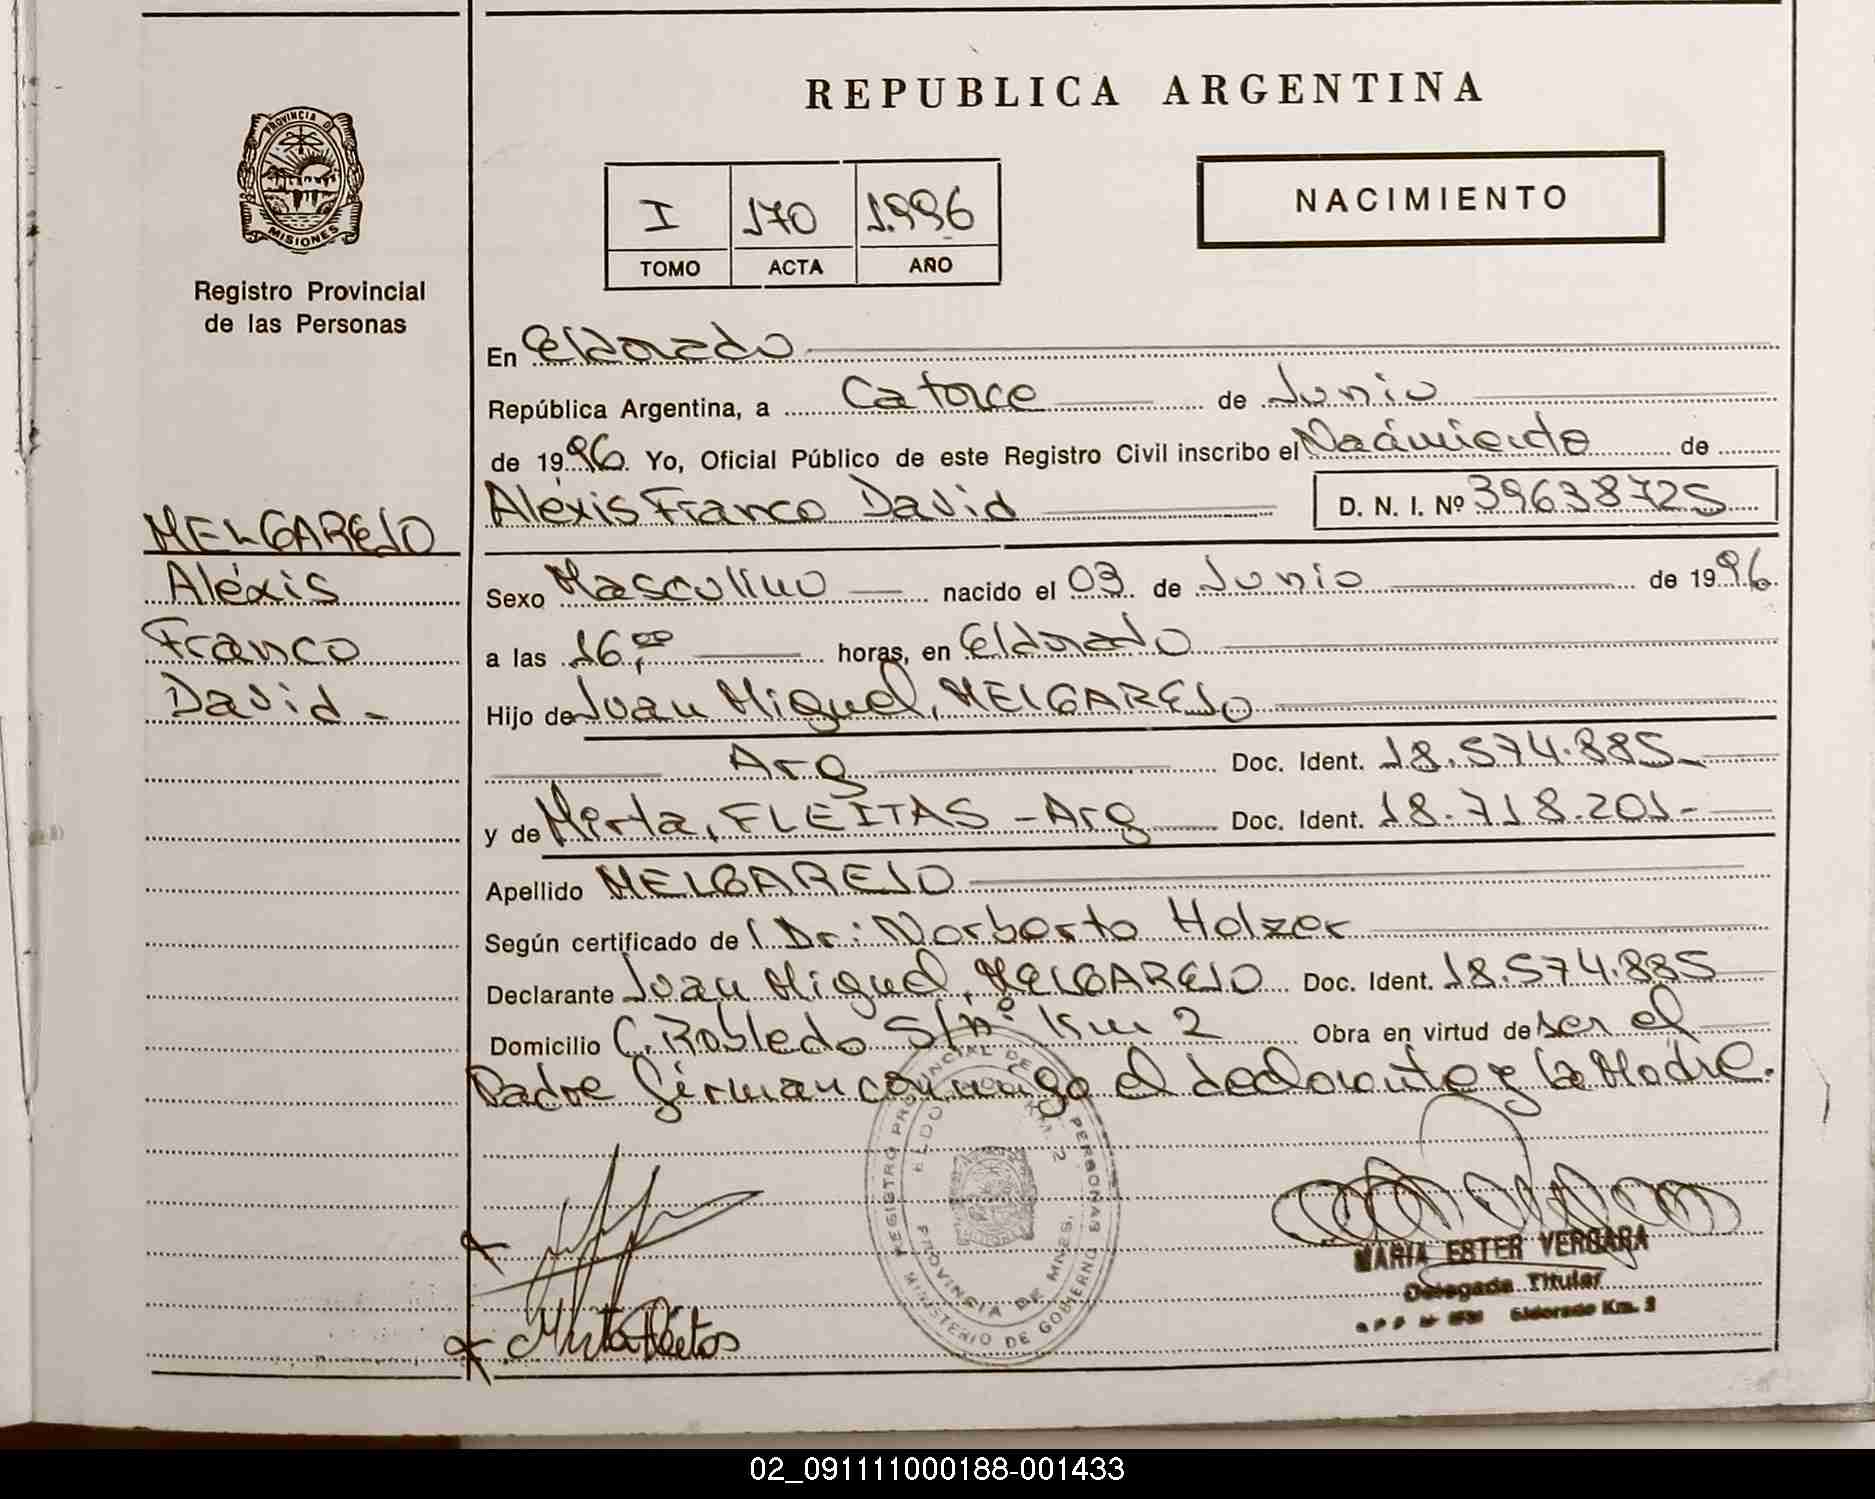 REPUBLICA ARGENTINA
PROVINCIA DE
MISIONES
Registro Provincial
de las Personas
I 170 1.996
TOMO ACTA AÑO
NACIMIENTO
En Eldorado
República Argentina, a Catorce de Junio
de 1996. Yo, Oficial Público de este Registro Civil inscribo el Nacimiento de
Aléxis Franco David D. N. I. Nº 39638725
MELGAREJO
Aléxis
Franco
David -
Sexo Masculino nacido el 03 de Junio de 1996.
a las 16,00 horas, en Eldorado
Hijo de Juan Miguel, MELGAREJO
Arg Doc. Ident. 18.574.885-
y de Mirta, FLEITAS - Arg Doc. Ident. 18.718.201-
Apellido MELGAREJO
Según certificado de l Dr: Norberto Holzer
Declarante Juan Miguel, MELGAREJO Doc. Ident. 18.574.885
Domicilio C. Robledo S/nº Km 2 Obra en virtud de ser el
Padre firman conmigo el declarante y la Madre.
REGISTRO PROVINCIAL DE LAS PERSONAS
ELDORADO KM. 2
PROVINCIA DE MNES.
MINISTERIO DE GOBIERNO
Mirta Fleitas
MARIA ESTER VERGARA
Delegada Titular
Eldorado Km. 2
02_091111000188-001433